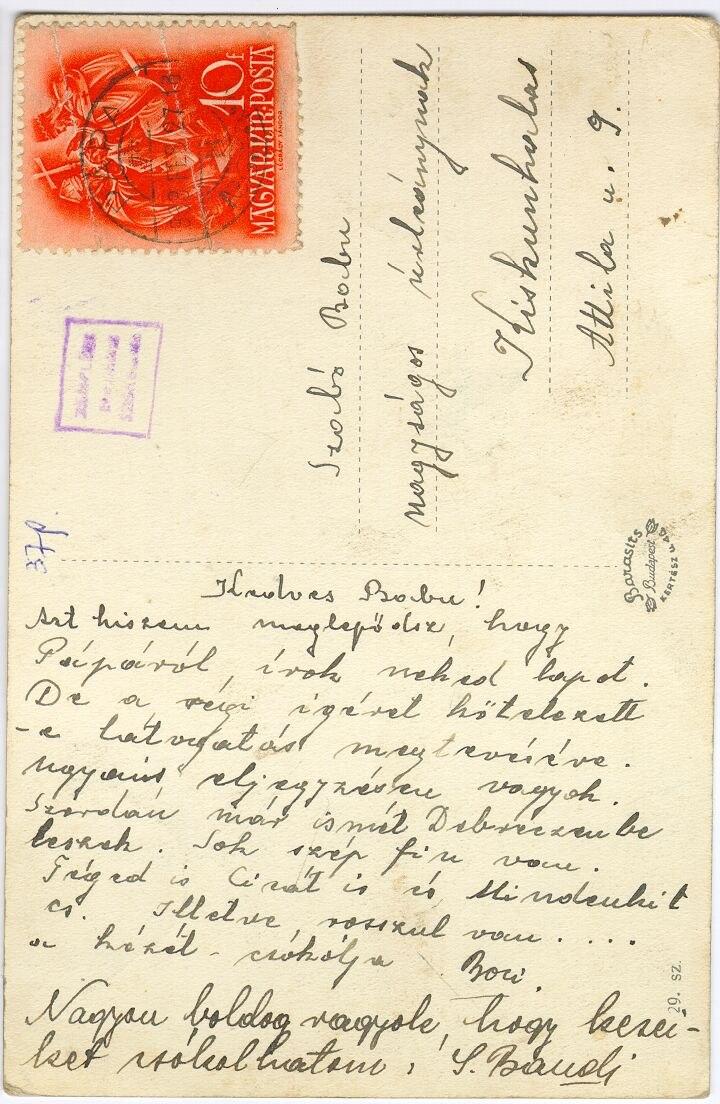 10f
MAGYAR·KIR·POSTA
LEGRÁDY SÁNDOR
PÁPA
Szabó Babu
nagyságos úrleánynak
Kiskunhalas
Attila u. 9.
37f.
Barasits
Budapest
KERTÉSZ U.
Kedves Babu!
Azt hiszem meglepődsz, hogy
Pápáról írok neked lapot.
De a régi igéret kötelezett
-e látogatás megtevésére.
ugyanis eljegyzésen vagyok.
Szerdán már ismét Debreczenbe
leszek. Sok szép fiu van.
Téged is Cicát is és Mindenkit
cs. Illetve, rosszul van....
a kézét csókólja Boci.
Nagyon boldog vagyok, hogy kezei-
ket csókolhatom: S. Bandi
29. sz.